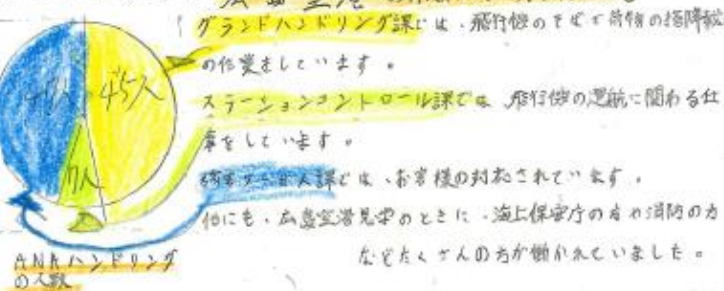 広島空港
グランドハンドリング課では、飛行機のそばで荷物の搭降載
の作業をしています。
ステーションコントロール課では、飛行機の運航に関わる仕
事をしています。
旅客サービス課では、お客様の対応されています。
他にも、広島空港見学のときに、海上保安庁の方や消防の方
などたくさんの方が働かれていました。
45人
7人
ANAハンドリング
の人数